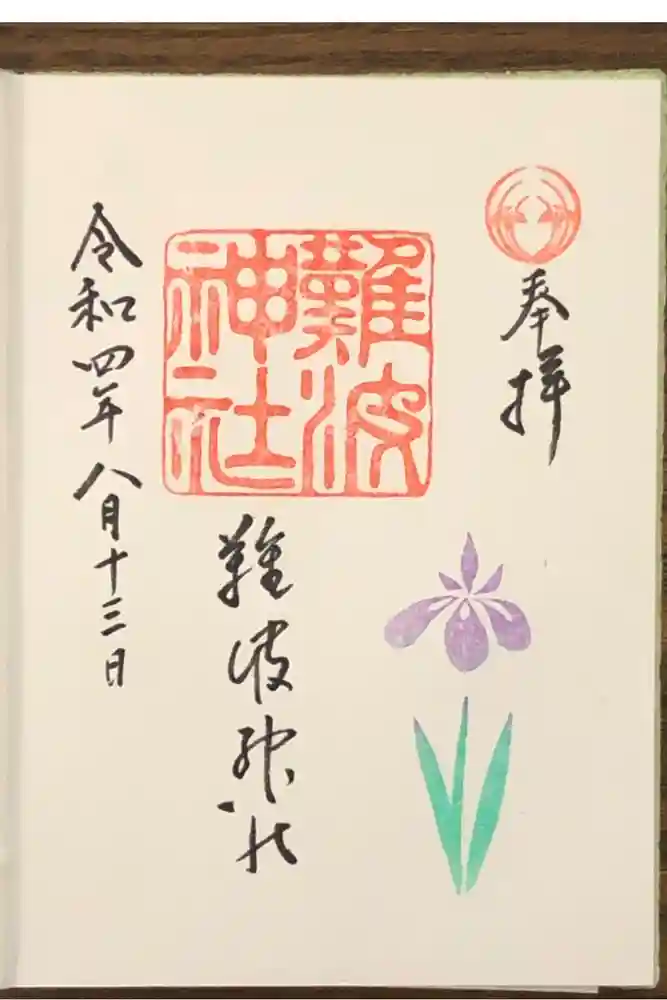 奉拝
難波神社
難波神社
令和四年八月十三日